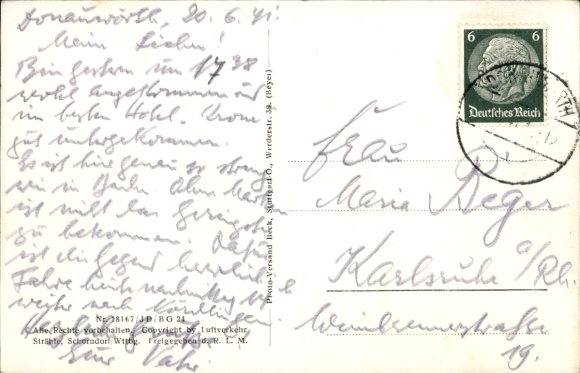 Donauwörth, 20.6.41.
Meine Lieben!
Bin gestern um 17 38
wohl angekommen und
im besten Hotel Krone
gut untergekommen.
Es ist hier genau so streng
wie in Baden. Ohne Marken
ist nicht das Geringste
zu bekommen. Dafür
ist die Gegend herrlich.
Fahre heute nachmittag
weiter nach Nördlingen.
Euer Vater
Photo-Versand Beck, Stuttgart-O., Werderstr. 38. (Beyer)
Nr. 28167/JD/BG 21
Alle Rechte vorbehalten. Copyright by Luftverkehr
Strähle, Schorndorf Wttbg. Freigegeben d. R. L. M.
6 6
Deutsches Reich
Frau
Maria Beger
Karlsruhe a/Rh.
19.